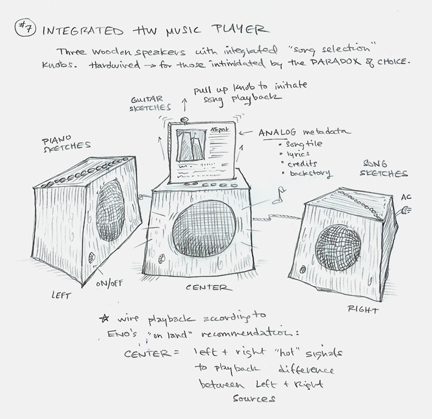 #7 INTEGRATED HW MUSIC PLAYER
Three wooden speakers with integrated "song selection"
knobs. Hardwired → for those intimidated by the PARADOX of CHOICE.
GUITAR
SKETCHES
pull up knob to initiate
song playback
PIANO
SKETCHES
ANALOG metadata
• song title
• lyrics
• credits
• backstory
SONG
SKETCHES
AC
ON/OFF
LEFT
CENTER
RIGHT
☆ wire playback according to
ENO'S "on land" recommendation:
CENTER = left + right "hot" signals
to playback difference
between Left + Right
Sources